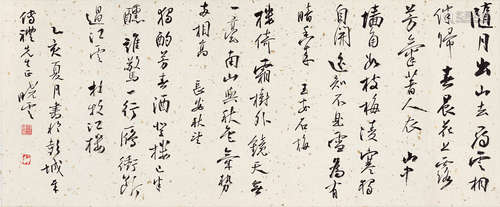 隨月出山去尋雲相
伴歸 春晨花上露
芳氣著人衣 山中
墻角數枝梅凌寒獨
自開遙知不是雪為有
暗香來 王安石梅
樓倚霜樹外鏡天無
一毫南山與秋色氣勢
兩相高 長安秋望
獨酌芳春酒登樓已半
醺誰驚一行雁衝斷
過江雲 杜牧江樓
乙亥夏月書於彭城奉
禮先生正 曉雲